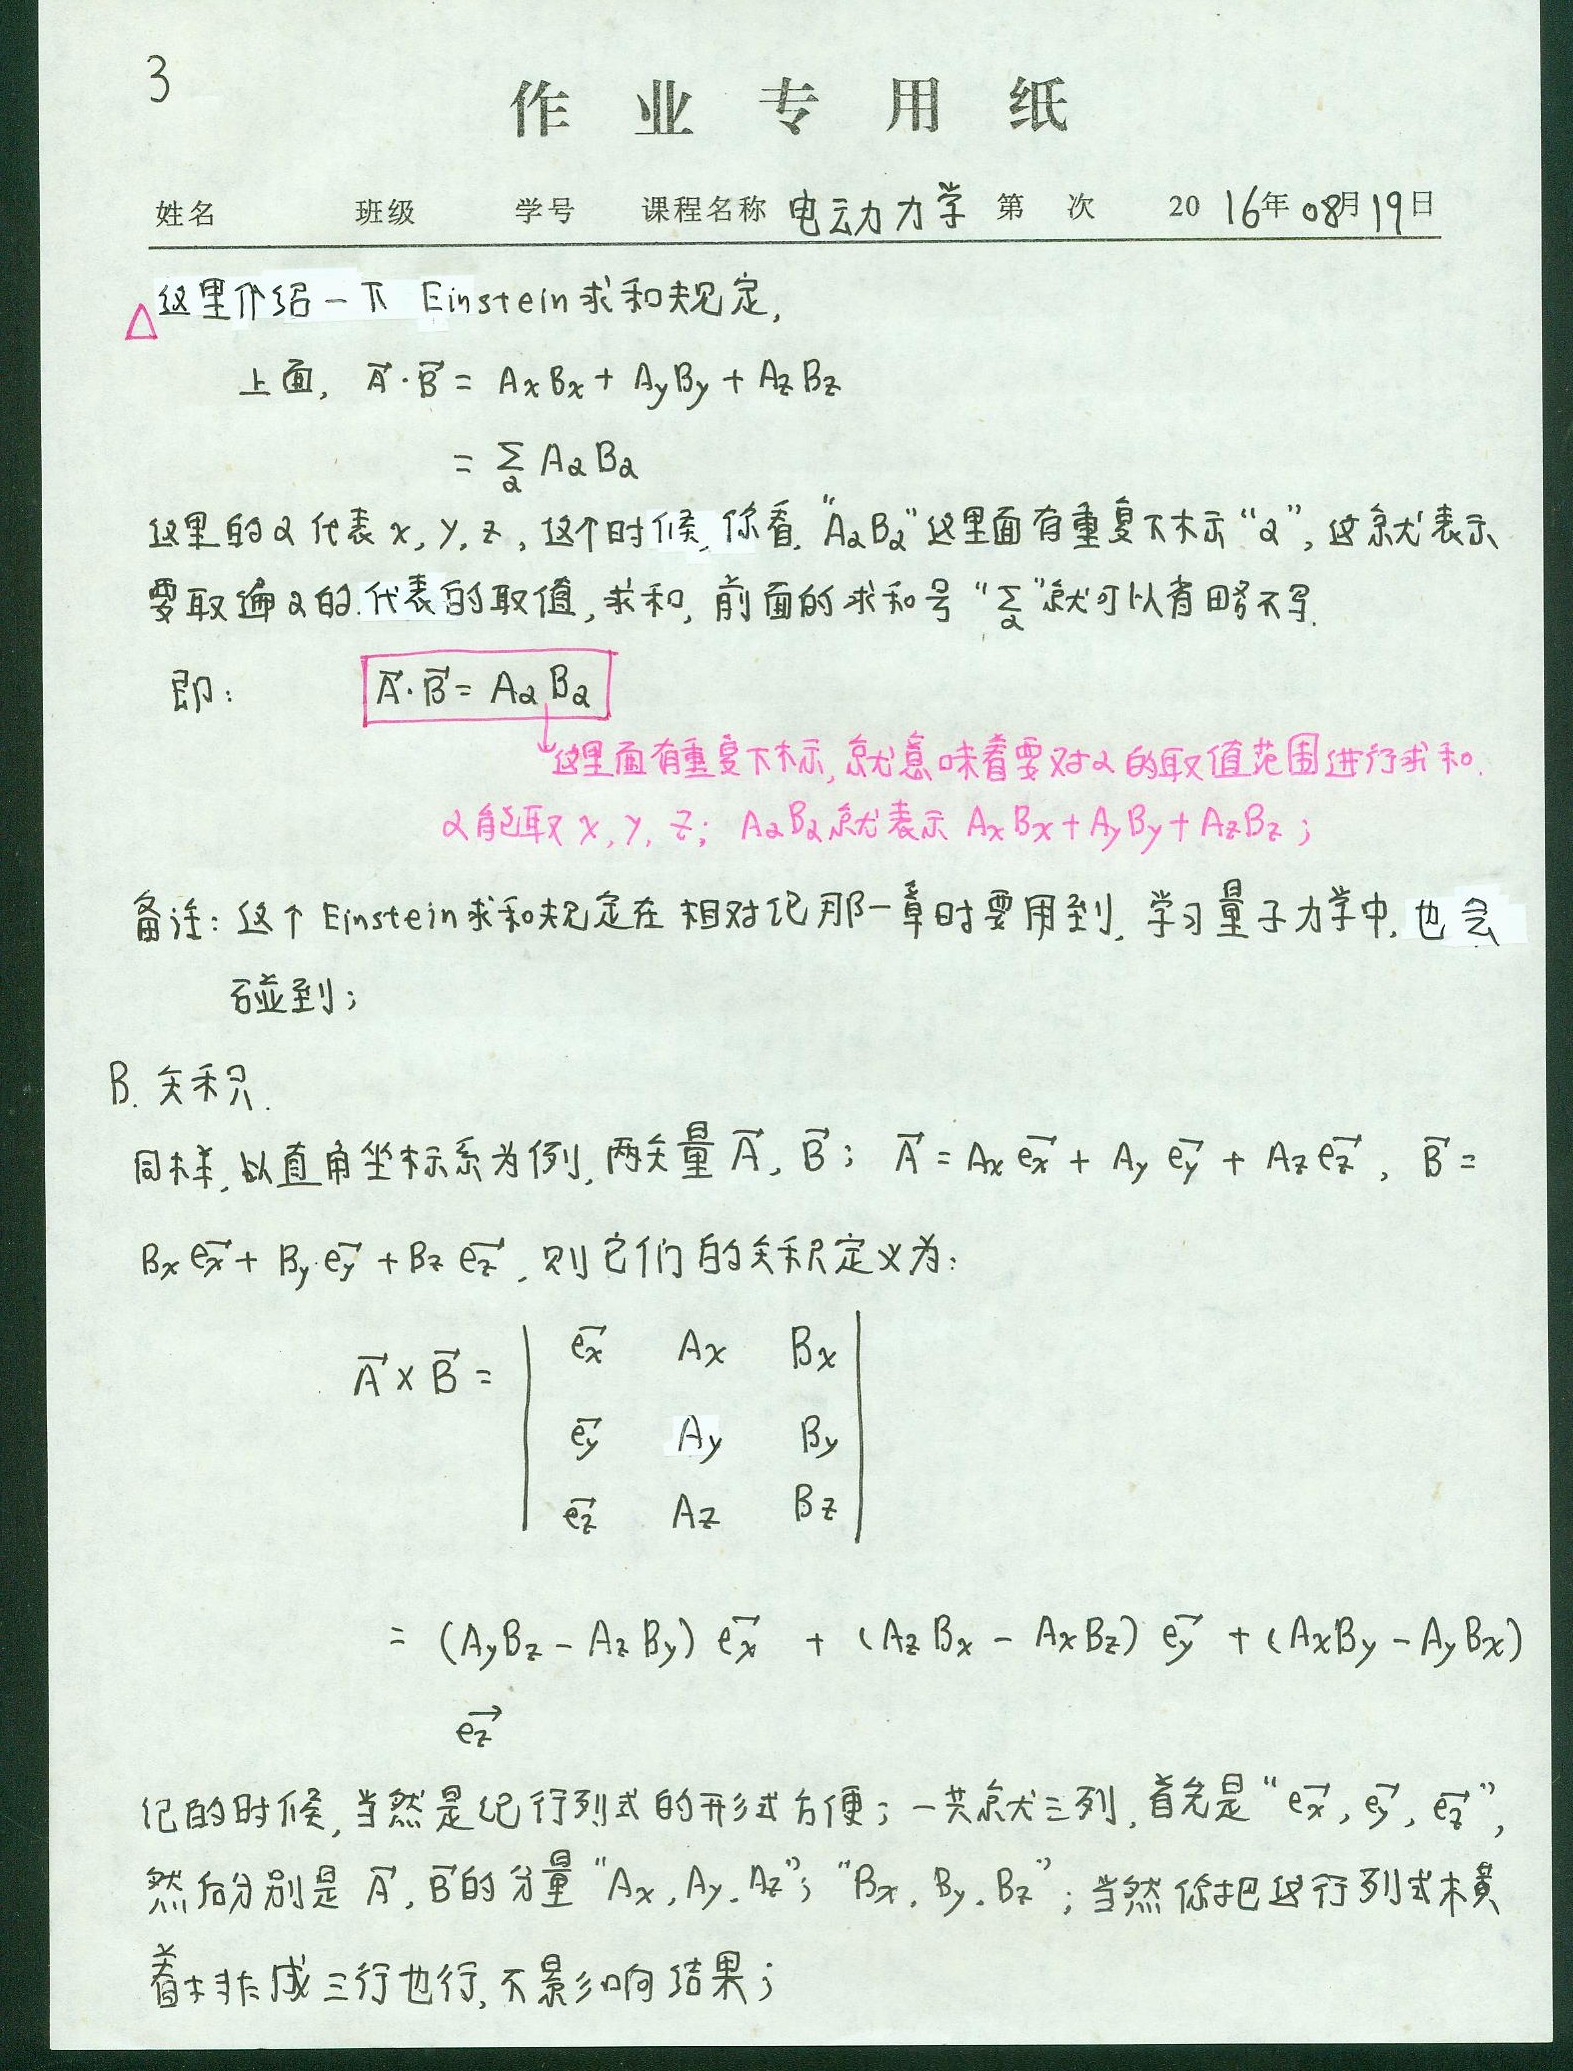 3
作业专用纸
姓名 班级 学号 课程名称 电动力学 第 次 20 16年 08月 19日
△这里介绍一下 Einstein求和规定,
上面, A⃗·B⃗ = AxBx + AyBy + AzBz
= Σα AαBα
这里的α代表 x, y, z, 这个时候, 你看, “AαBα”这里面有重复下标“α”, 这就表示
要取遍α的代表的取值, 求和, 前面的求和号“Σα”就可以省略不写.
即: A⃗·B⃗ = AαBα
↓这里面有重复下标, 就意味着要对α的取值范围进行求和.
α能取 x, y, z; AαBα就表示 AxBx + AyBy + AzBz;
备注: 这个 Einstein求和规定在相对论那一章时要用到, 学习量子力学中, 也会
碰到;
B. 矢积.
同样, 以直角坐标系为例, 两矢量 A⃗, B⃗; A⃗ = Ax e⃗x + Ay e⃗y + Az e⃗z, B⃗ =
Bx e⃗x + By e⃗y + Bz e⃗z, 则它们的矢积定义为:
e⃗x Ax Bx
A⃗ × B⃗ =
e⃗y Ay By
e⃗z Az Bz
= (AyBz - AzBy) e⃗x + (AzBx - AxBz) e⃗y + (AxBy - AyBx)
e⃗z
记的时候, 当然是记行列式的形式方便; 一共就三列, 首先是“e⃗x, e⃗y, e⃗z”,
然后分别是 A⃗, B⃗的分量“Ax, Ay, Az”; “Bx, By, Bz”; 当然你把这行列式横
着排成三行也行, 不影响结果;